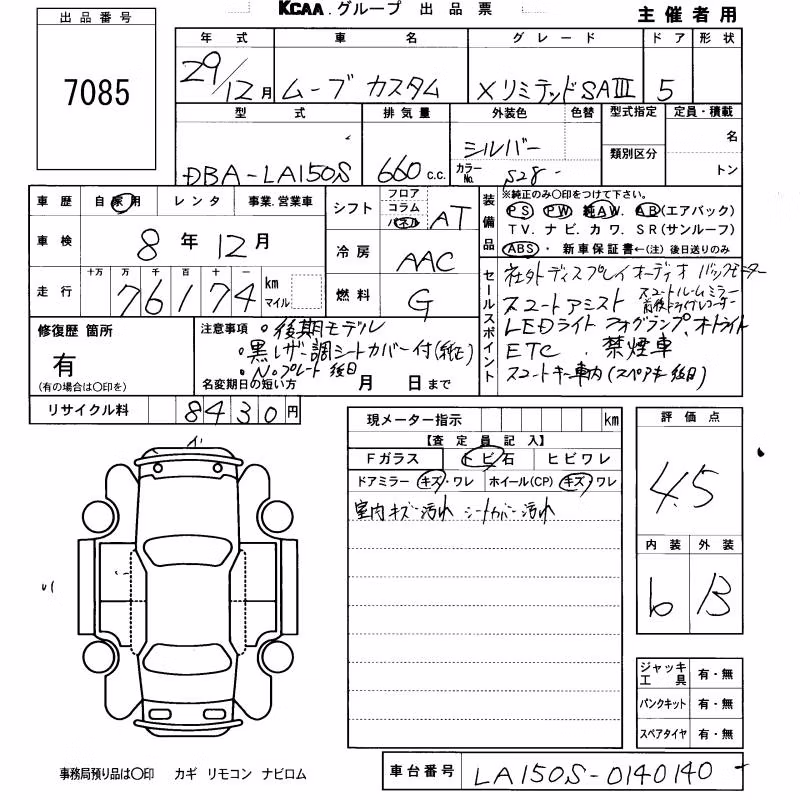 KCAA.グループ 出品票
主催者用
出品番号
7085
年式 車名 グレード ドア 形状
29/12月 ムーブ カスタム XリミテッドSAⅢ 5
型式 排気量 外装色 色替 型式指定 定員・積載
DBA-LA150S 660 c.c. シルバー 名
カラーNo. S28 類別区分 トン
車歴 自家用 レンタ 事業.営業車
車検 8年12月
走行 十万 万 千 百 十 一
76174 km マイル
シフト フロア コラム パネル AT
冷房 AAC
燃料 G
装備品 ※純正のみ〇印をつけて下さい。
PS PW 純AW. AB(エアバック)
TV. ナビ. カワ. SR(サンルーフ)
ABS・ 新車保証書←(注) 後日送りのみ
セールスポイント
社外ディスプレイオーディオ バックモニター
スマートアシスト スマートルームミラー
前後ドライブレコーダー
LEDライト フォグランプ、オートライト
ETC 、禁煙車
スマートキー車内(スペアキー後日)
修復歴 箇所
有
(有の場合は〇印を)
注意事項 ・後期モデル
・黒レザー調シートカバー付(純正)
・N・プレート後日
名変期日の短い方 月 日まで
リサイクル料 8430円
現メーター指示 km
【査定員記入】
Fガラス トビ石 ヒビワレ
ドアミラー キズ・ワレ ホイール(CP) キズ・ワレ
室内キズ・汚れ シートカバー汚れ
評価点
4.5
内装 外装
b B
ジャッキ工具 有・無
パンクキット 有・無
スペアタイヤ 有・無
事務局預り品は〇印 カギ リモコン ナビロム
車台番号 LA150S-0140140